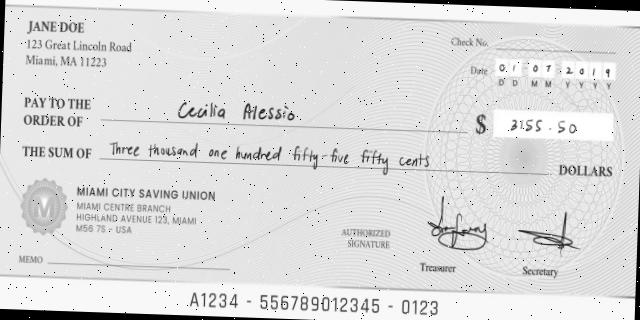 JANE DOE
123 Great Lincoln Road
Miami, MA 11223
Check No.
Date 01 07 2019
D D M M Y Y Y Y
PAY TO THE
ORDER OF Cecilia Alessio
$ 3155.50
THE SUM OF Three thousand one hundred fifty-five fifty cents
DOLLARS
M
MIAMI CITY SAVING UNION
MIAMI CENTRE BRANCH
HIGHLAND AVENUE 123, MIAMI
M56 7S - USA
AUTHORIZED
SIGNATURE
Treasurer
Secretary
MEMO
A1234 - 556789012345 - 0123